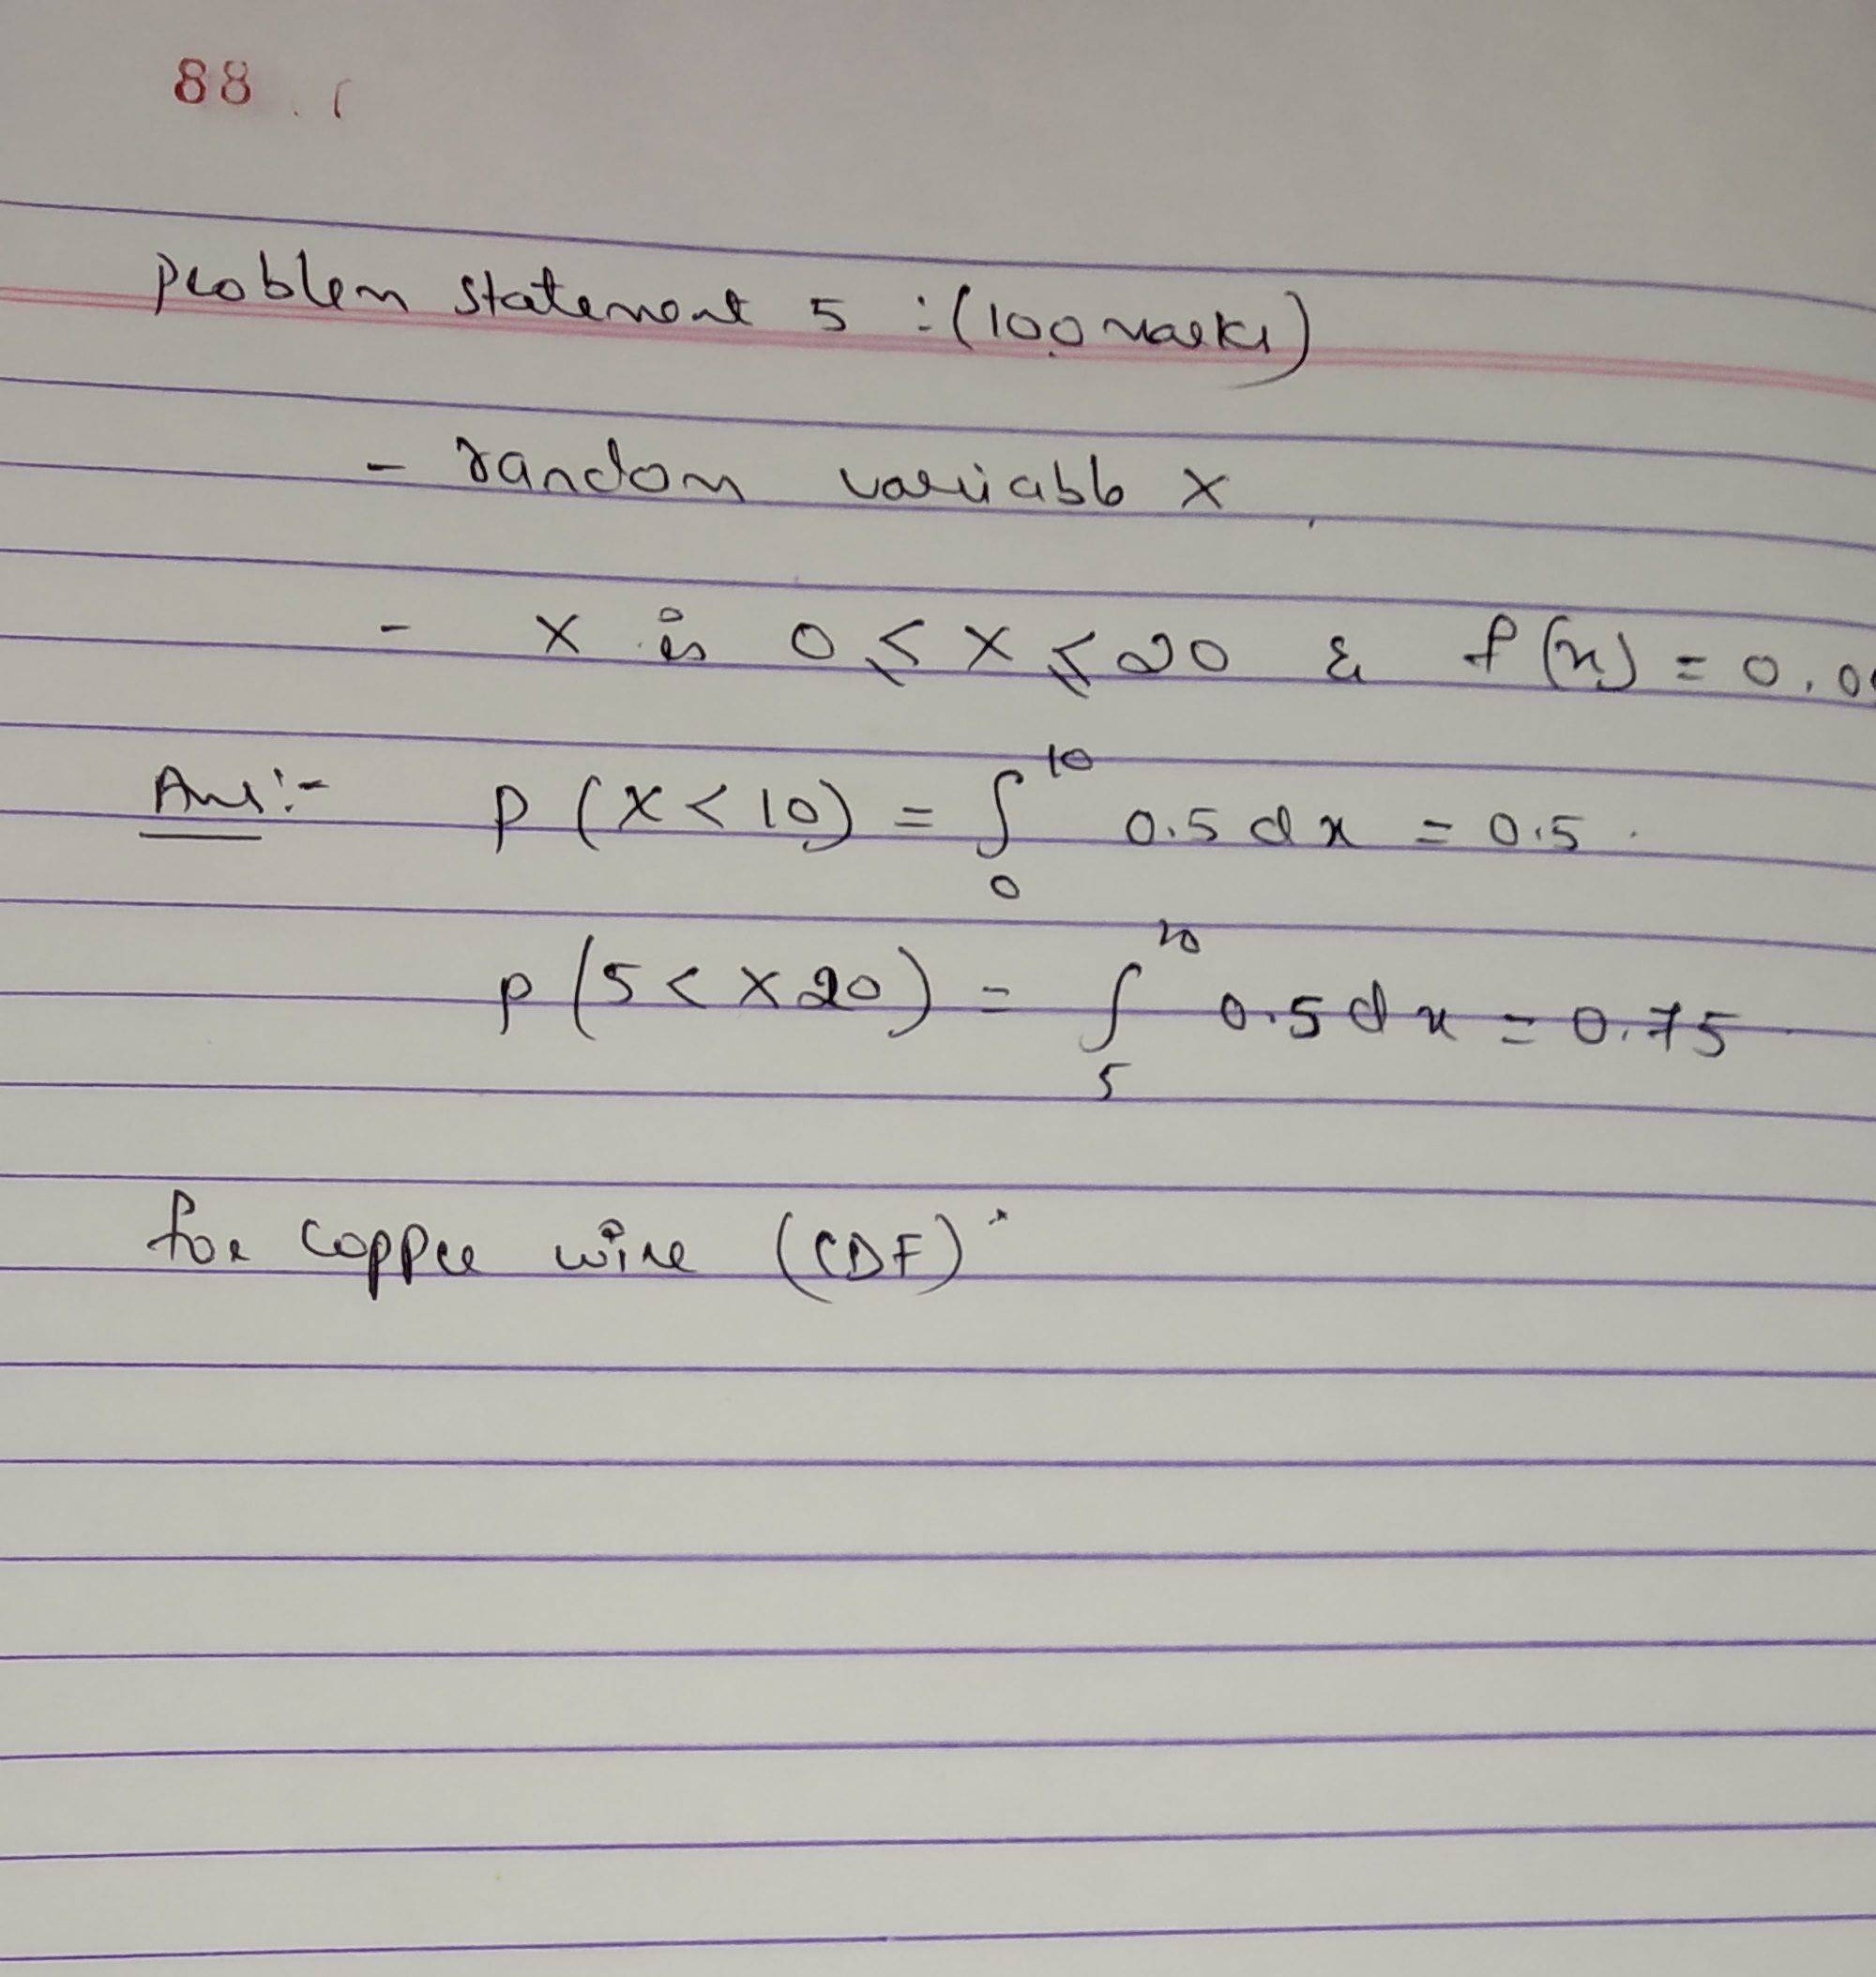 88
Problem statement 5 :(100 marks)
- random variable X
- X is 0 ≤ X ≤ 20 & f(x) = 0.0
Ans:- P(X<10) = ∫₀¹⁰ 0.5 dx = 0.5
P(5<X20) = ∫₅²⁰ 0.5 dx = 0.75
for copper wire (CDF)